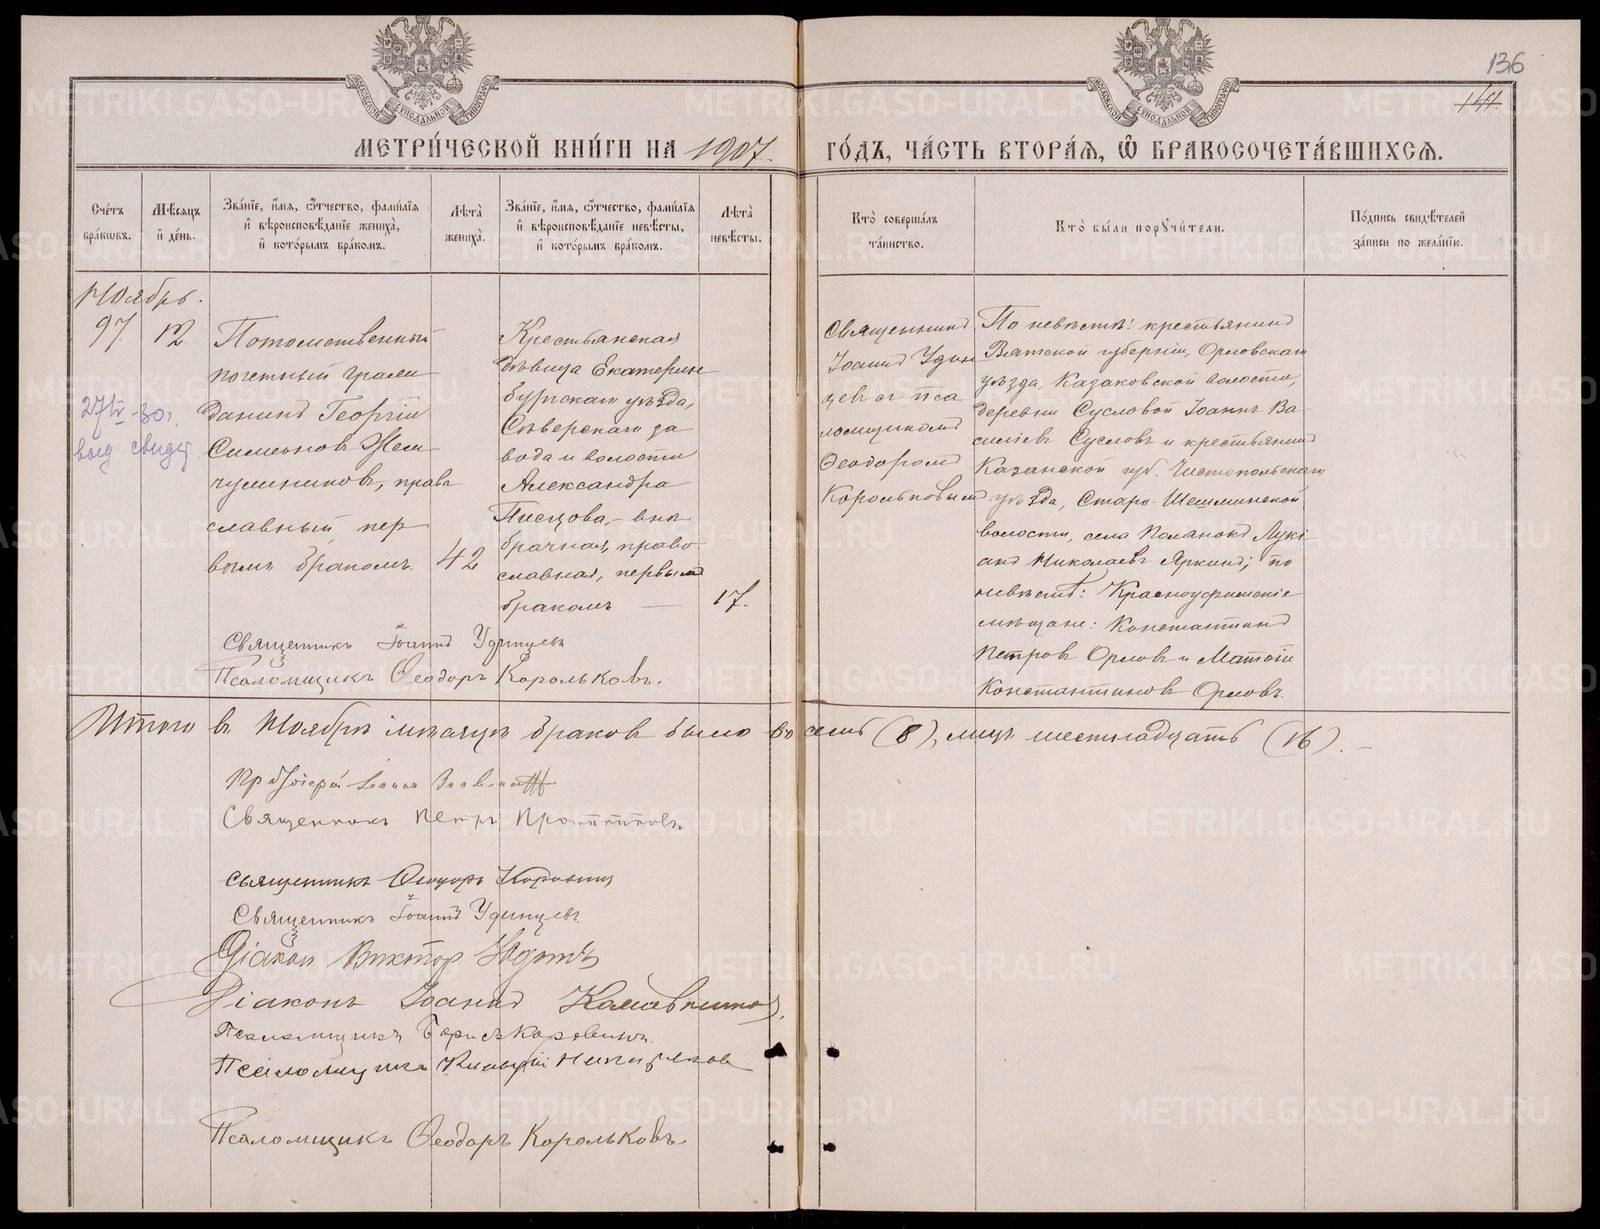 136
141.
МЕТРИ́ЧЕСКОЙ КНИ́ГИ НА 1907. ГО́ДЪ, ЧА́СТЬ ВТОРА́Я, Ѽ БРАКОСОЧЕТА́ВШИХСЯ.
Счетъ бра́ковъ.
Мѣ́сяцъ и҆ де́нь.
Зва́нїе, и҆́мя, ѻ҆́тчество, фами́лїя и҆ вѣроисповѣ́данїе жениха̀, и҆ кото́рымъ бра́комъ.
Лѣта̀ жениха̀.
Зва́нїе, и҆́мя, ѻ҆́тчество, фами́лїя и҆ вѣроисповѣ́данїе невѣ́сты, и҆ кото́рымъ бра́комъ.
Лѣта̀ невѣ́сты.
Кто̀ соверша́лъ та́инство.
Кто̀ бы́ли порꙋчи́тели.
По́дпись свидѣ́телей за́писи по жела́нїю.
Ноябрь.
97.
12.
Потомственный
почетный граж
данинъ Георгій
Симеоновъ Жем
чужниковъ, право
славный пер
вымъ бракомъ.
42
27/IV-30 г.
выд свидет
Крестьянская
дѣвица Екатерин
бургскаго уѣзда,
Сѣверскаго за
вода и волости
Александра
Писцова, - вне
брачная, право
славная, первымъ
бракомъ —
17.
Священникъ
Іоаннъ Удин
цевъ съ пса
ломщикомъ
Ѳеодоромъ
Корольковымъ
По невѣстѣ: крестьянинъ
Вятской губерніи, Орловскаго
уѣзда, Казаковской волости,
деревни Сусловой Іоаннъ Ва
сильевъ Сусловъ и крестьянинъ
Казанской губ. Чистопольскаго
уѣзда, Старо-Шешминской
волости, села Полянокъ Лукі
анъ Николаевъ Яркинъ; по
невѣстѣ: Красноуфимскіе
мѣщане: Константинъ
Петровъ Орловъ и Матѳій
Константиновъ Орловъ.
Священникъ Іоаннъ Удинцевъ
Псаломщикъ Ѳеодоръ Корольковъ.
Итого въ Ноябрѣ мѣсяцѣ браковъ было восемь (8), лицъ шестнадцать (16). —
Священникъ Петръ
Священникъ Ѳеодоръ Коровинъ
Священникъ Іоаннъ Удинцевъ.
Діаконъ Викторъ
Діаконъ Іоаннъ
Псаломщикъ Борисъ Коровинъ.
Псаломщикъ
Псаломщикъ Ѳеодоръ Корольковъ.
METRIKI.GASO-URAL.RU